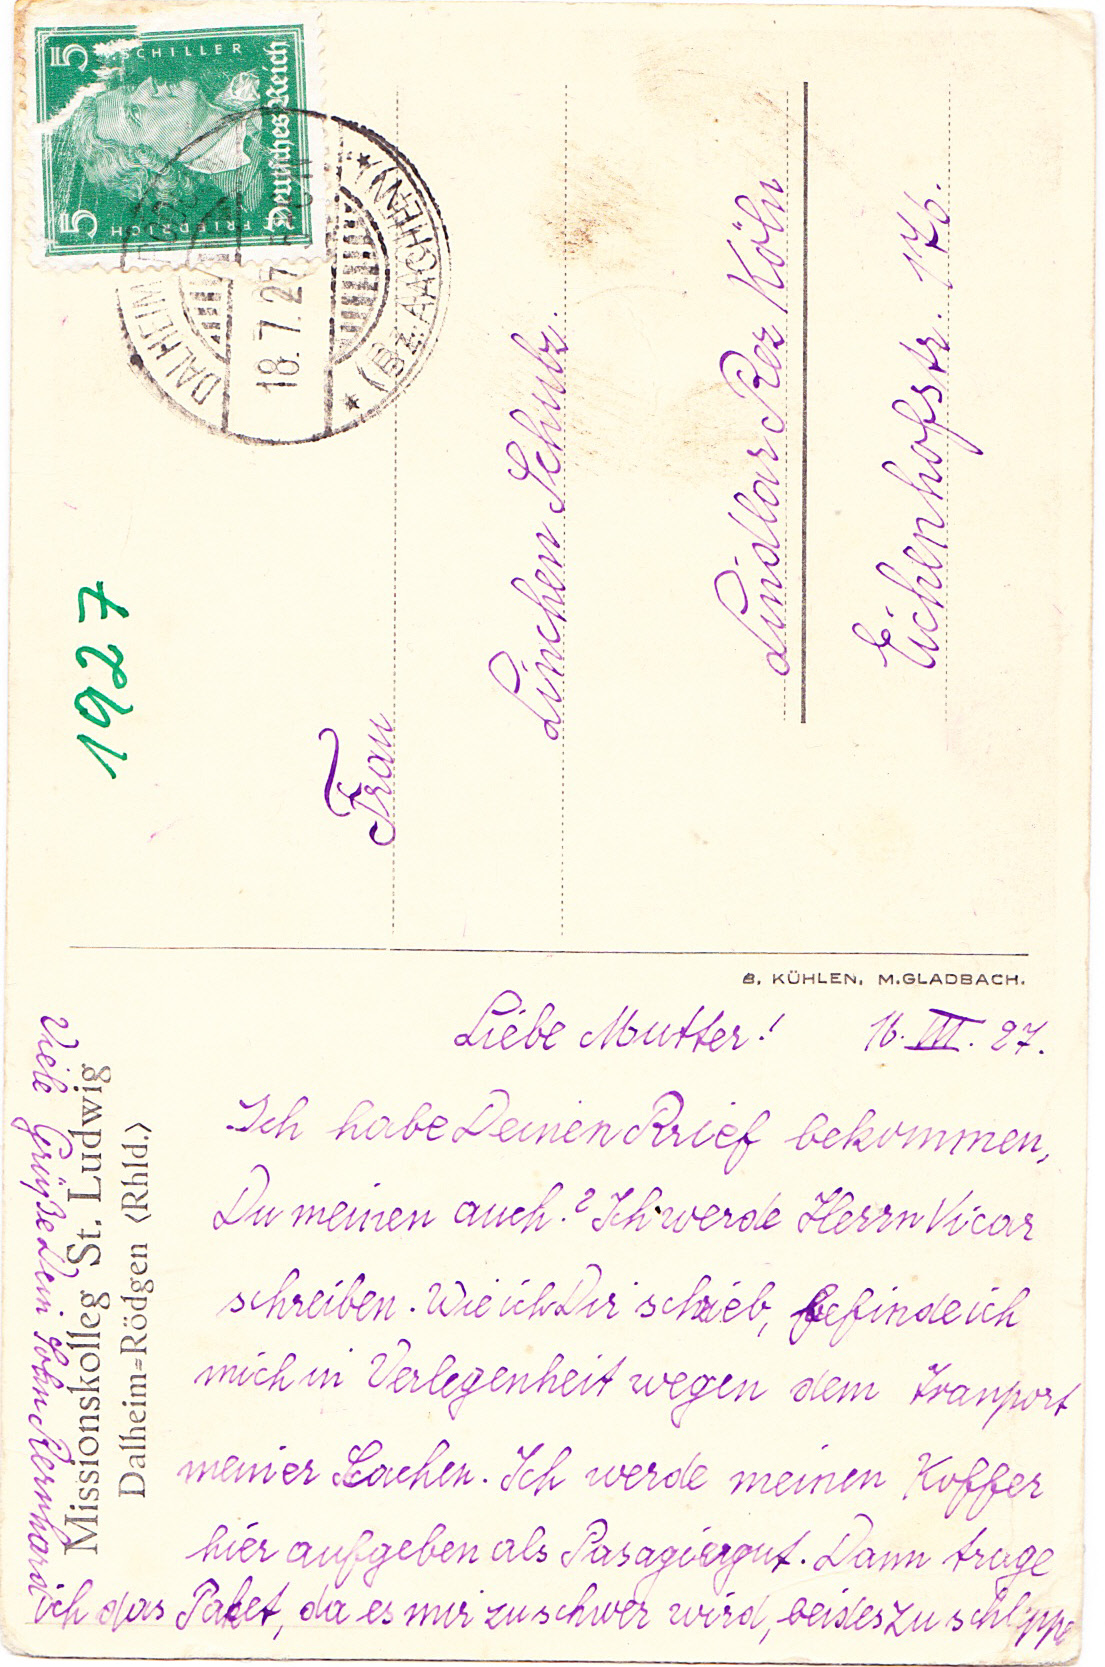 5 5
FRIEDRICH SCHILLER
Deutsches Reich
DALHEIM
18.7.27
(Bz. AACHEN)
1927
Frau
Linchen Schulz.
Lindlar Bez Köln
Eichenhofstr. 176.
B. KÜHLEN, M.GLADBACH.
Missionskolleg St. Ludwig
Dalheim=Rödgen (Rhld.)
Liebe Mutter! 16. VII. 27.
Ich habe Deinen Brief bekommen,
Du meinen auch? Ich werde Herrn Vicar
schreiben. Wie ich Dir schrieb, befinde ich
mich in Verlegenheit wegen dem Tranport
meiner Sachen. Ich werde meinen Koffer
hier aufgeben als Pasagiergut. Dann trage
ich das Paket, da es mir zu schwer wird, beides zu schleppe
Viele Grüße Dein Sohn Bernhard